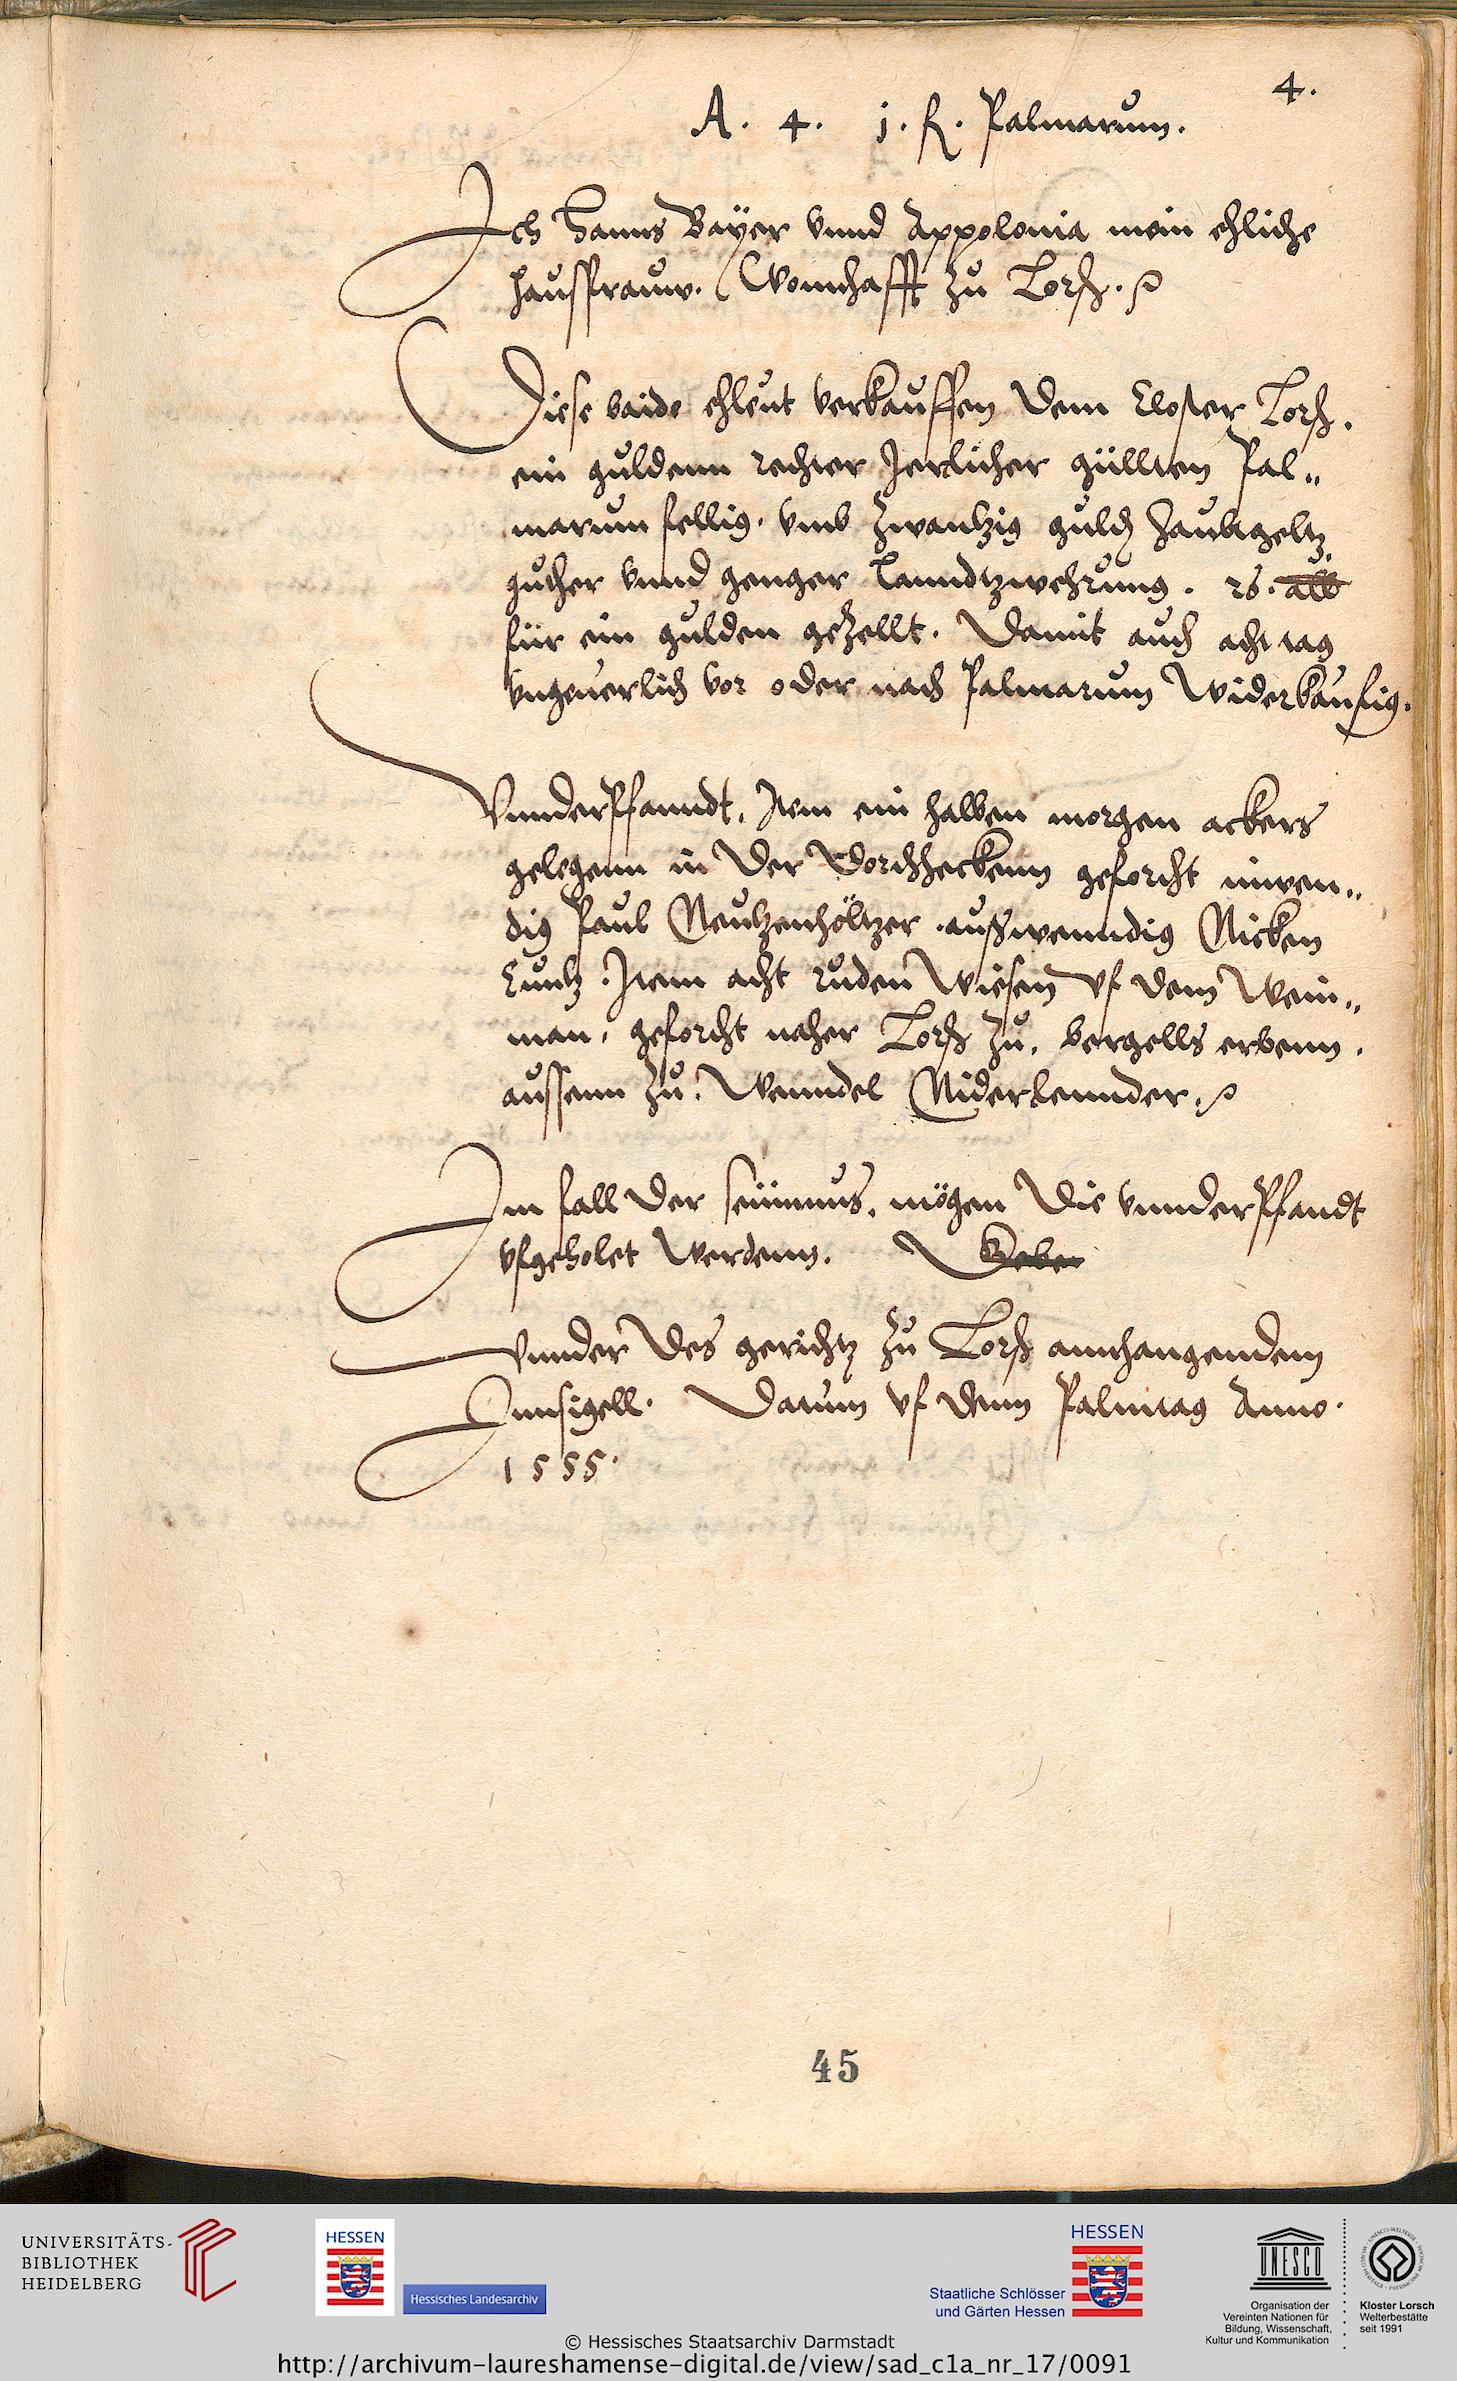 4.
A. 4. j. fl. Palmarum.
Ich Hanns Bayer vnnd Appolonia mein ehliche
haussfrauw. Wonnhafft zu Lorß.
Diese baide ehleut verkauffen dem Closter Lorß.
ein guldenn rechter Jerlicher güllten Pal„
marum fellig. vmb zwantzig guld haubtgeltz.
guther vnnd genger Lanndtzwehrung. 26. alb
für ein gulden gezellt. Damit auch acht tag
vngeuerlich vor oder nach Palmarum widerkaufig.
Vnnderpfanndt. Item ein halben morgen ackers
gelegenn in der geforcht inwen„
dig Paul Neutzenhöltzer. außwenndig Nicken
Cuntz. Item acht ruden wiesen vf dem Wein„
man, geforcht naher Lorß zu. bergells erbenn.
aussenn zu. Wenndel Niderlennder.
Im fall der seumnus. mögen die vnnderpfandt
vfgeholet werdenn.
Vnnder des gerichtz zu Lorß annhangendem
Innsigell. Datum vf denn Palmtag Anno.
1555.
45
UNIVERSITÄTS-
BIBLIOTHEK
HEIDELBERG
HESSEN
Hessisches Landesarchiv
HESSEN
Staatliche Schlösser
und Gärten Hessen
UNESCO
Organisation der
Vereinten Nationen für
Bildung, Wissenschaft,
Kultur und Kommunikation
Kloster Lorsch
Welterbestätte
seit 1991
© Hessisches Staatsarchiv Darmstadt
http://archivum-laureshamense-digital.de/view/sad_c1a_nr_17/0091